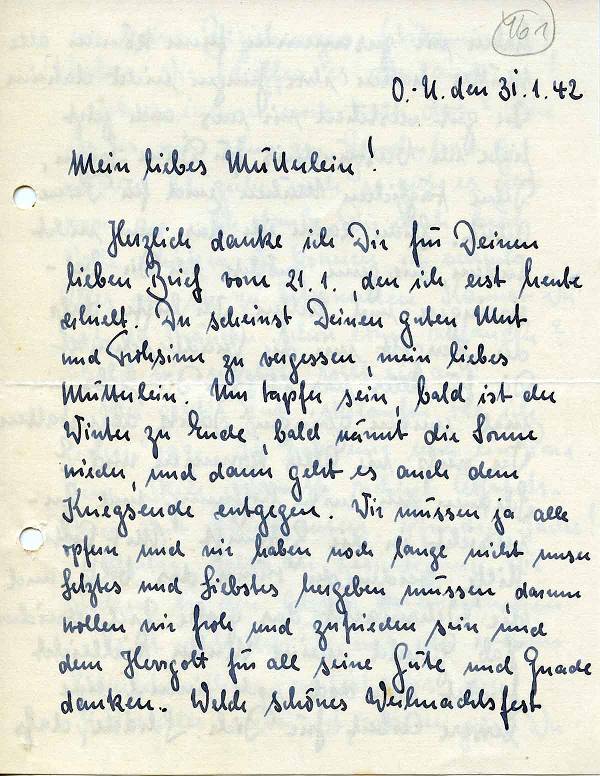 961
O.-U. den 31.1.42
Mein liebes Mütterlein!
Herzlich danke ich Dir für Deinen
lieben Brief vom 21.1., den ich erst heute
erhielt. Du scheinst Deinen guten Mut
und Frohsinn zu vergessen, mein liebes
Mütterlein. Nur tapfer sein, bald ist der
Winter zu Ende, bald wärmt die Sonne
wieder, und dann geht es auch dem
Kriegsende entgegen. Wir müssen ja alle
opfern und wir haben noch lange nicht unser
Letztes und Liebstes hergeben müssen, darum
wollen wir froh und zufrieden sein und
dem Herrgott für all seine Güte und Gnade
danken. Welch schönes Weihnachtsfest